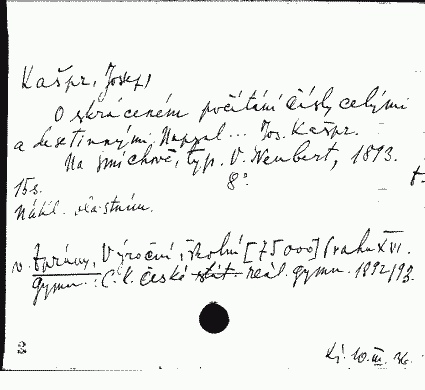 Kašpr, Josef,
O skráceném počítání čísly celými
a desetinnými. Napsal... Jos. Kašpr.
Na Smíchově, typ. V. Neubert, 1893.
15 s. 8°.
Nákl. vlastním.
v. Zprávy, Výroční, školní [75000] Praha XVI.
Gymn.: C. k. české stát. reál. gymn. 1892/93.
10. III. 36.